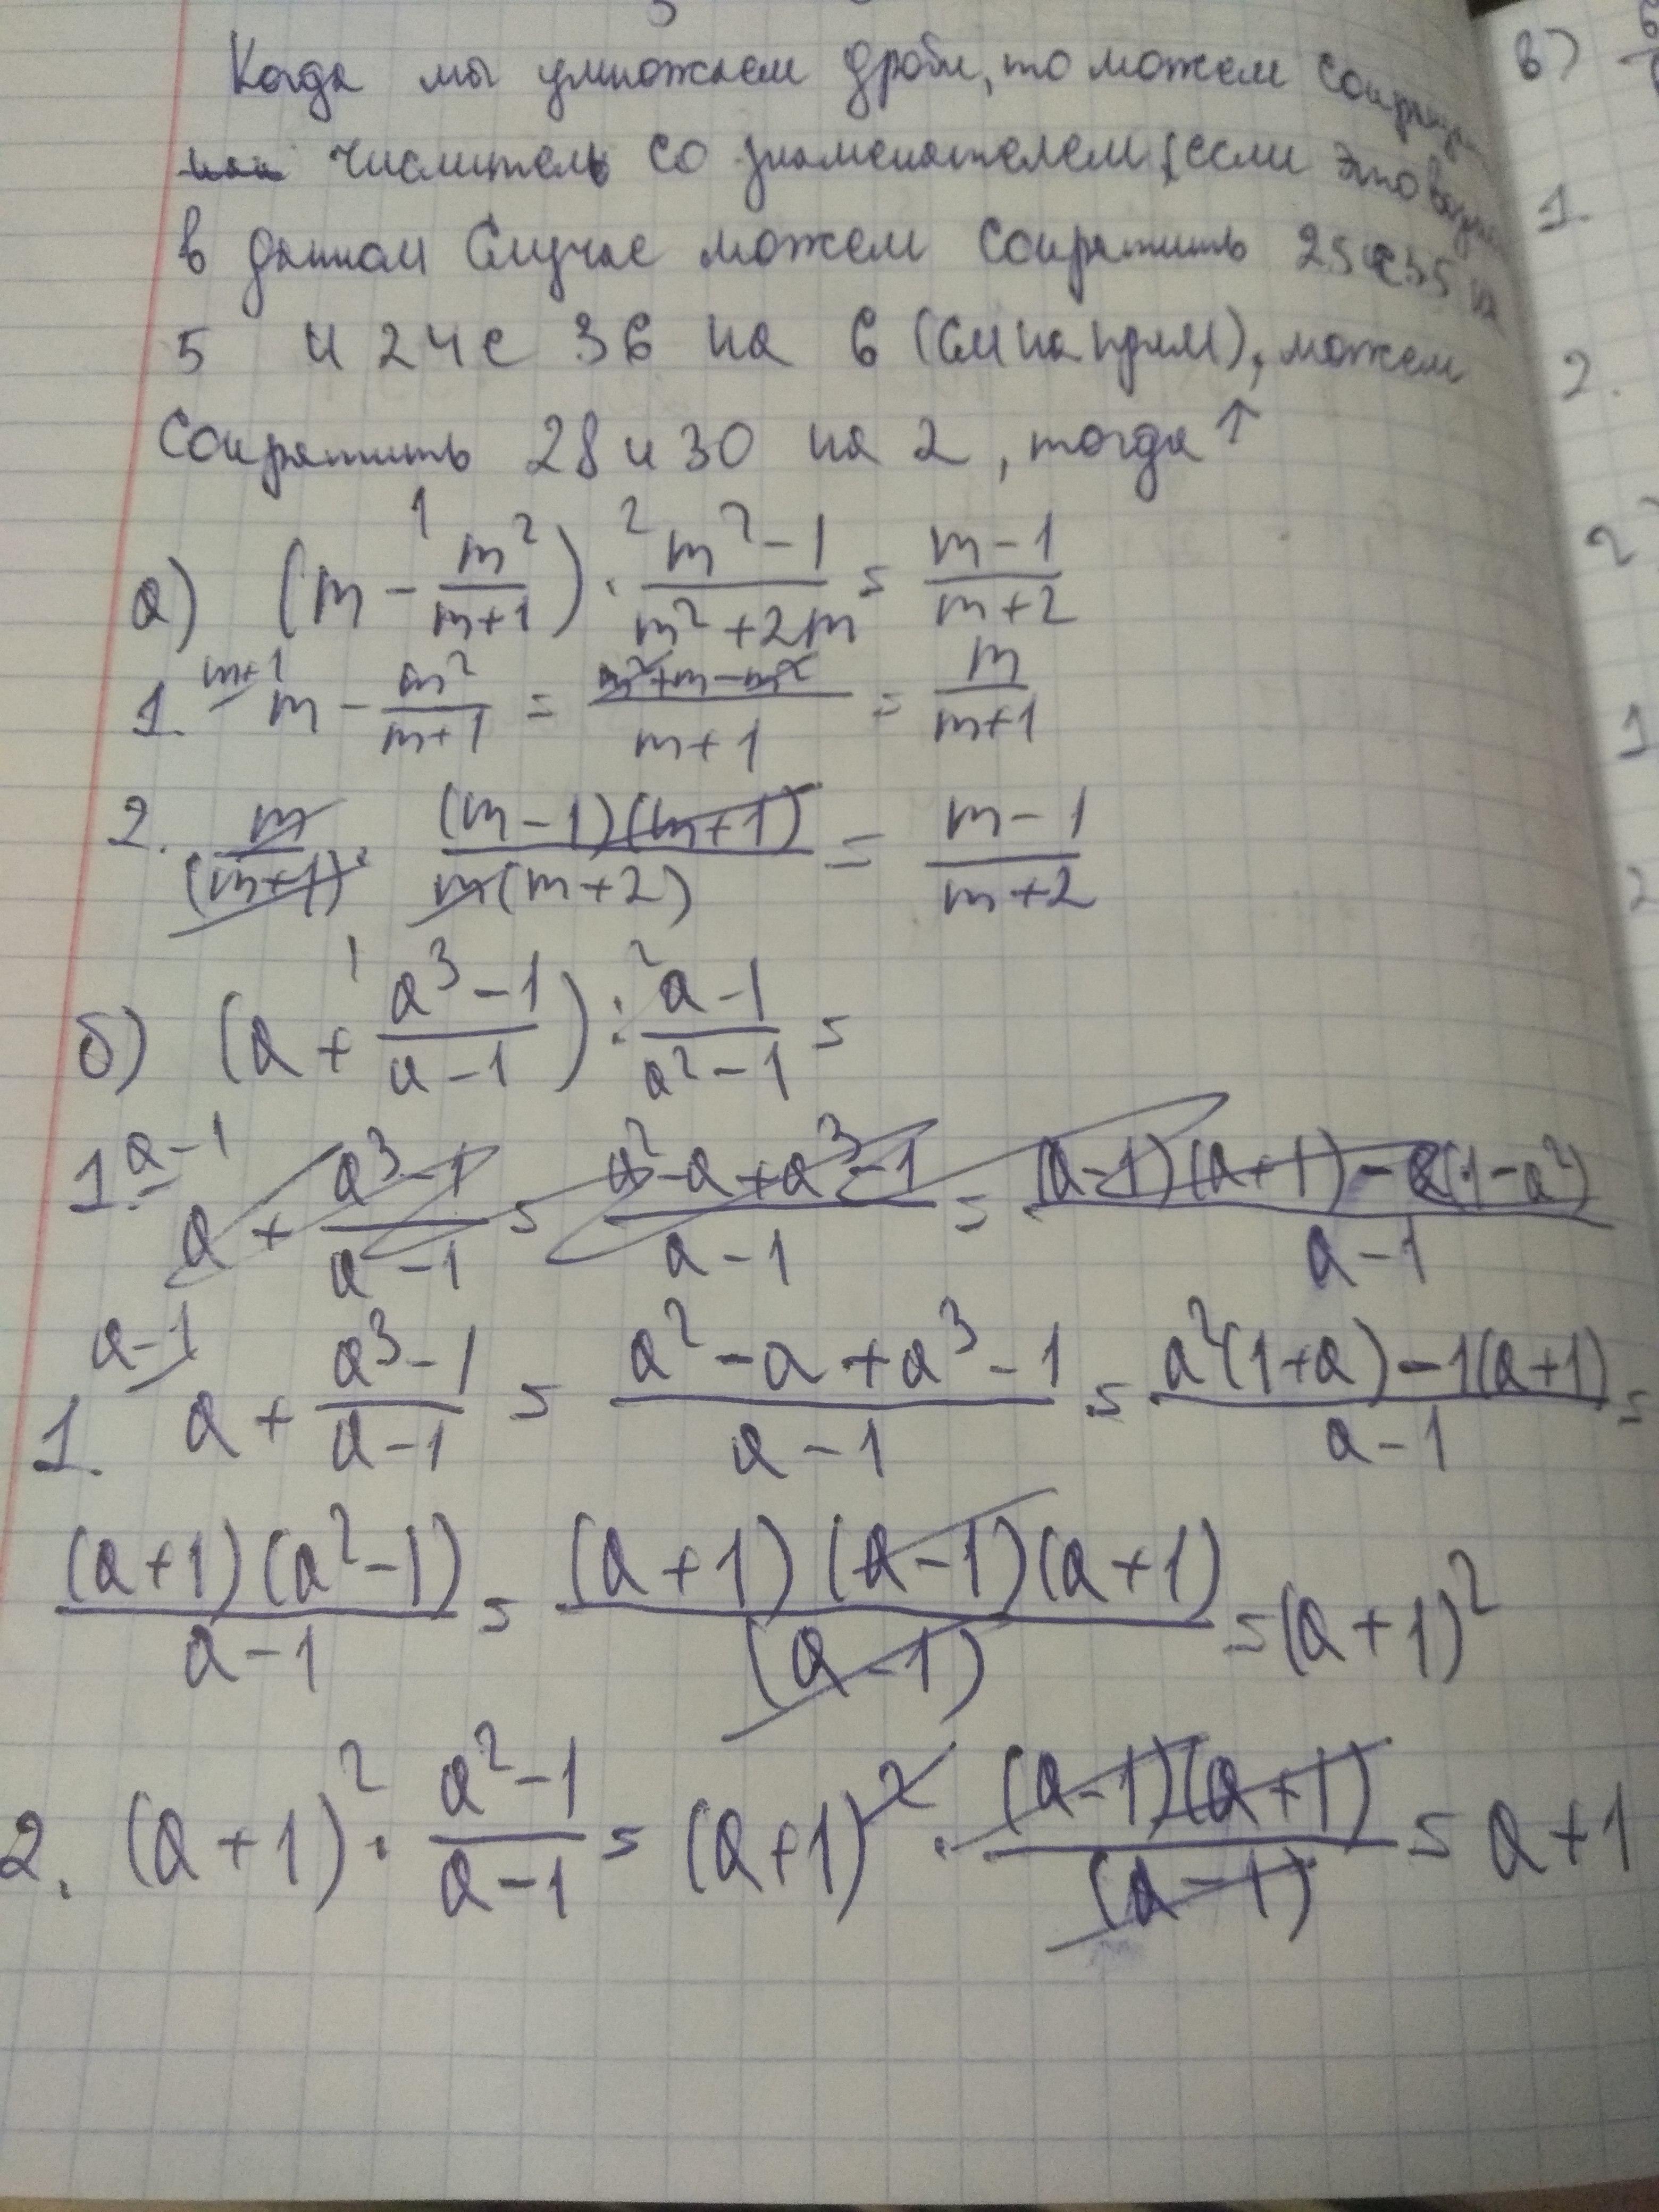 Когда мы умножаем дроби, то можем
числитель со знаменателем, если это
в данном случае можем сократить 25 с 35 на
5 и 24 с 36 на 6 (см на прим), можем
сократить 28 и 30 на 2, тогда ↑
в)
а) (m - ¹ m²/(m+1)) · ² (m²-1)/(m²+2m) = (m-1)/(m+2)
1. m+1 m - m²/(m+1) = (m²+m-m²)/(m+1) = m/(m+1)
2. m/(m+1) · (m-1)(m+1)/(m(m+2)) = (m-1)/(m+2)
б) (a + ¹ (a³-1)/(a-1)) : ² (a-1)/(a²-1) =
1. a-1 a + (a³-1)/(a-1) = (a²-a+a³-1)/(a-1) = ((a-1)(a+1)-a(1-a²))/(a-1)
1. a-1 a + (a³-1)/(a-1) = (a²-a+a³-1)/(a-1) = (a²(1+a)-1(a+1))/(a-1) =
(a+1)(a²-1)/(a-1) = (a+1)(a-1)(a+1)/(a-1) = (a+1)²
2. (a+1)² · (a²-1)/(a-1) = (a+1)² · (a-1)(a+1)/(a-1) = a+1
1.
2.
2
1
2